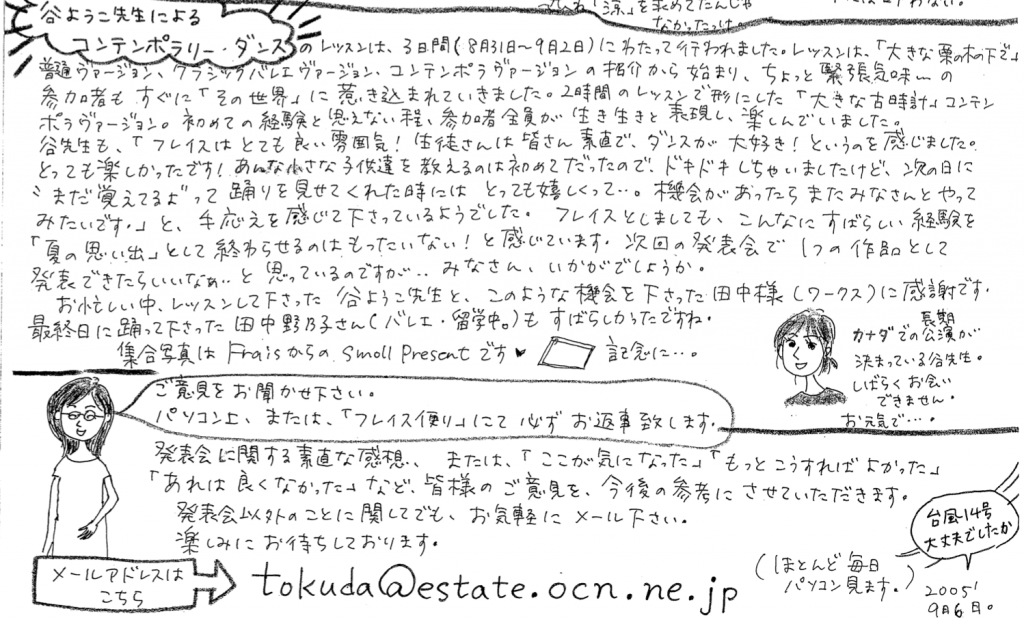 「涼」を求めてたんじゃ
なかったっけ。
谷ようこ先生による
コンテンポラリー・ダンスのレッスンは、3日間(8月31日〜9月2日)にわたって行われました。レッスンは、「大きな栗の木の下で」
普通ヴァージョン、クラシックバレエヴァージョン、コンテンポラヴァージョンの紹介から始まり、ちょっと緊張気味…の
参加者もすぐに「その世界」に惹き込まれていきました。2時間のレッスンで形にした「大きな古時計」コンテン
ポラヴァージョン。初めての経験と思えない程、参加者全員が生き生きと表現し、楽しんでいました。
谷先生も、「フレイスはとても良い雰囲気!生徒さんは皆さん素直で、ダンスが大好き!というのを感じました。
とっても楽しかったです!あんな小さな子供達を教えるのは初めてだったので、ドキドキしちゃいましたけど、次の日に
"まだ覚えてるよ"って踊りを見せてくれた時にはとっても嬉しくって…。機会があったらまたみなさんとやって
みたいです。」と、手応えを感じて下さっているようでした。フレイスとしましても、こんなにすばらしい経験を
「夏の思い出」として終わらせるのはもったいない!と感じています。次回の発表会で1つの作品として
発表できたらいいなぁ…と思っているのですが…みなさん、いかがでしょうか。
お忙しい中、レッスンして下さった谷ようこ先生と、このような機会を下さった田中様(ワークス)に感謝です。
最終日に踊って下さった田中野乃子さん(バレエ・留学中。)もすばらしかったですね。
集合写真はFraisからのsmall Presentです♥ 記念に…。
長期
カナダでの公演が
決まっている谷先生。
しばらくお会い
できません。
お元気で…。
ご意見をお聞かせ下さい。
パソコン上、または、「フレイス便り」にて必ずお返事致します。
発表会に関する素直な感想、または、「ここが気になった」「もっとこうすればよかった」
「あれは良くなかった」など、皆様のご意見を、今後の参考にさせていただきます。
発表会以外のことに関してでも、お気軽にメール下さい。
楽しみにお待ちしております。
メールアドレスは
こちら
tokuda@estate.ocn.ne.jp
(ほとんど毎日
パソコン見ます。)
台風14号
大丈夫でしたか
2005'
9月6日。